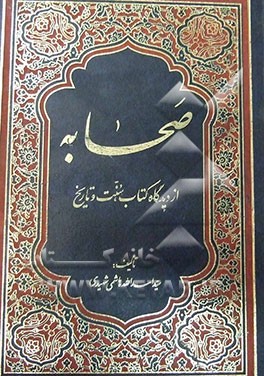 صحابه
از دیدگاه کتاب، سنّت و تاریخ
تألیف:
هاشمی شهیدی
خانه کتاب